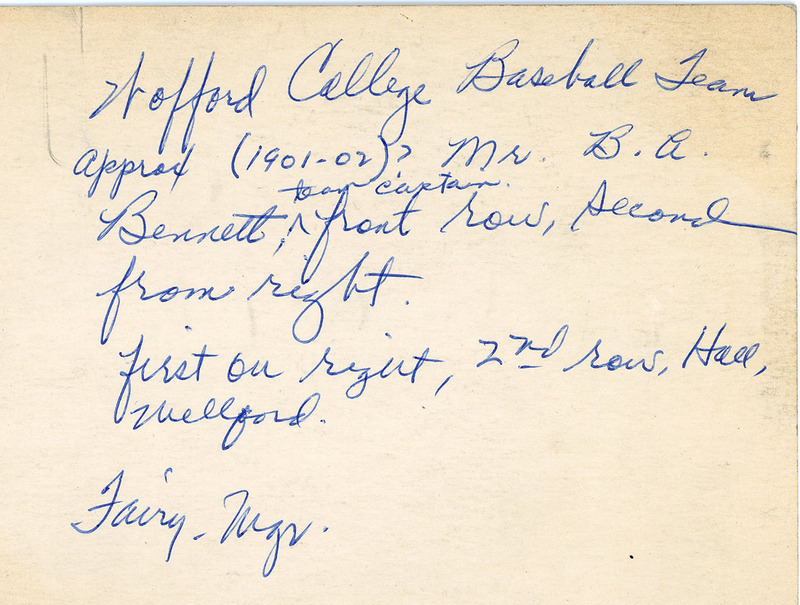 Wofford College Baseball Team
approx (1901-02)? Mr. B. A.
team captain.
Bennett, ^ front row, second
from right.
first on right, 2nd row, Hall,
Wellford.
Fairy - Mgr.